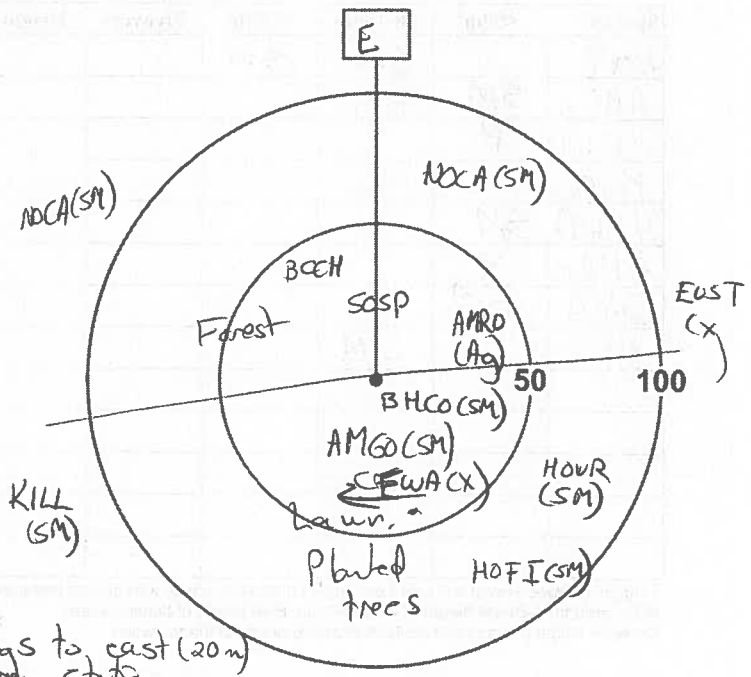 E
NOCA (SM)
NOCA (SM)
BCCH
SOSP
EUST
(X)
Forest
AMRO
(Ag)
50
100
BHCO (SM)
AMGO (SM)
HOWR
(SM)
KILL
(SM)
Lawn,
Planted
trees
HOFI (SM)
to east (20m)